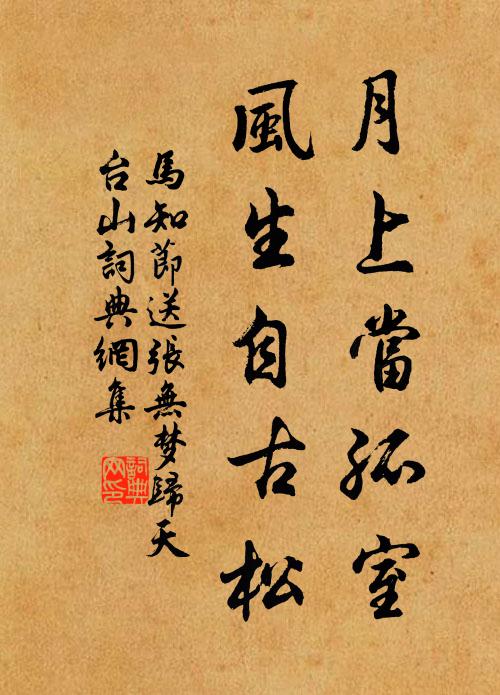 月上當孤室
風生自古松
馬知節送張無梦歸天
台山詞典網集
詞典
网印